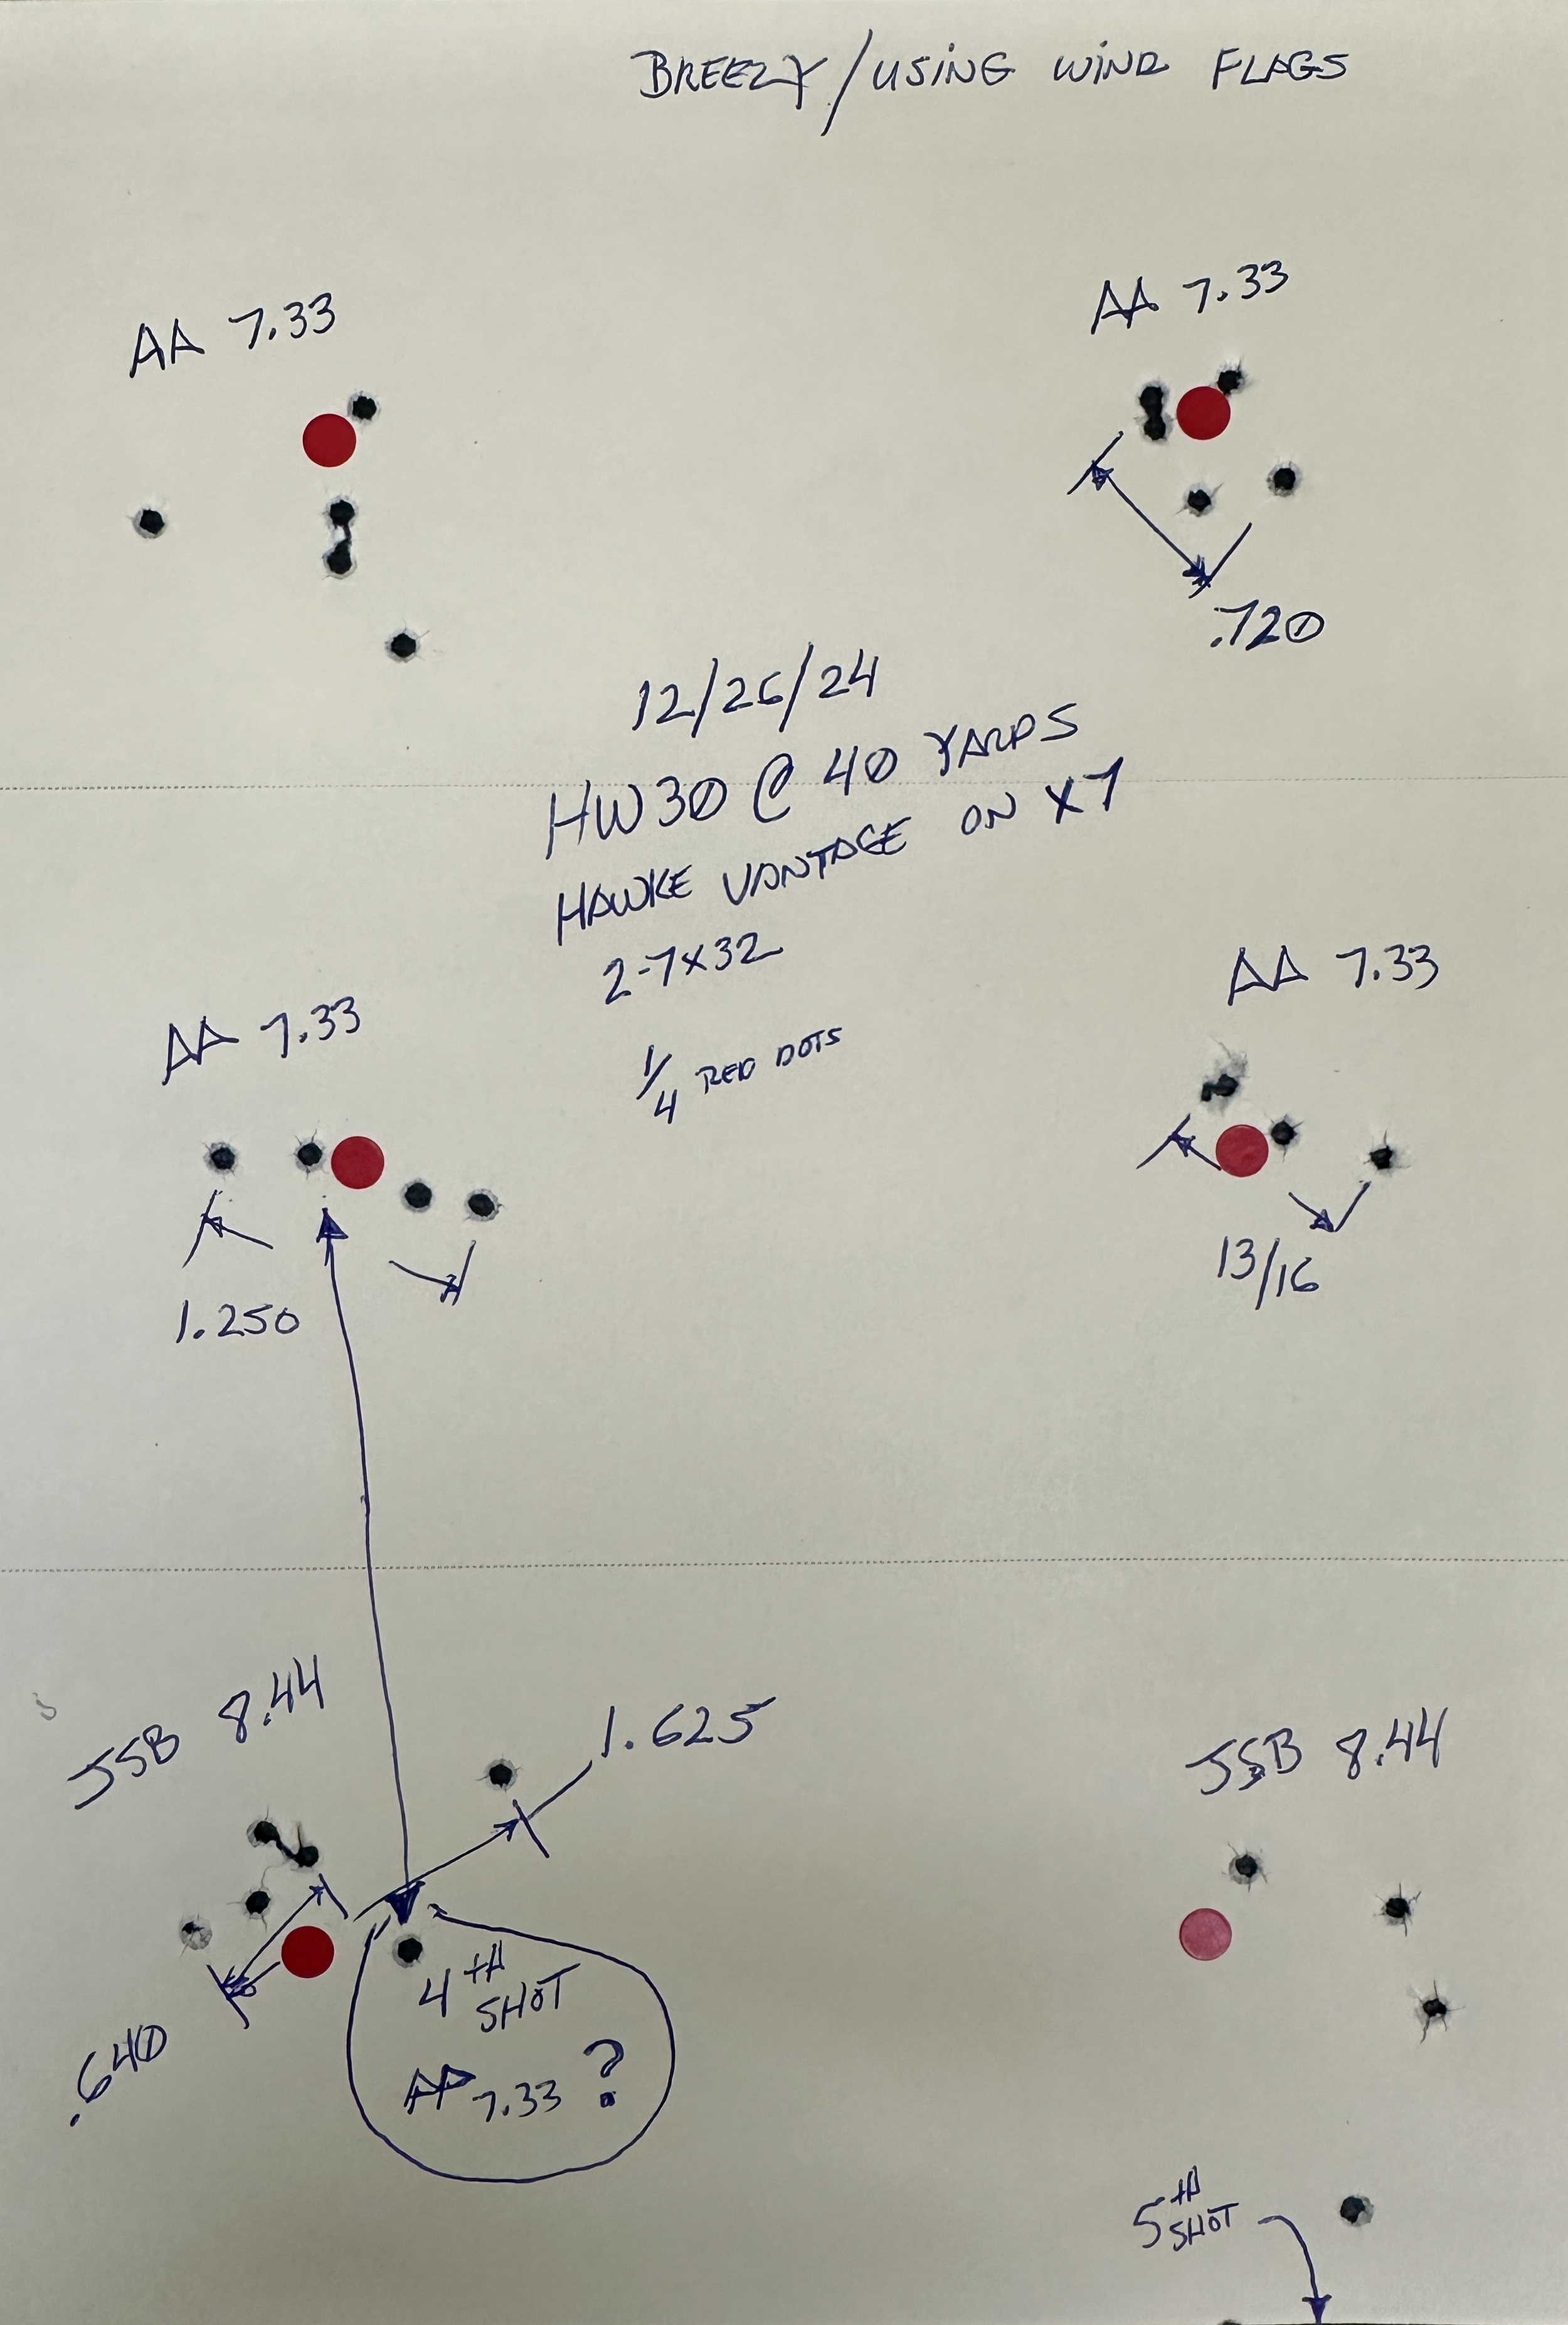 BREEZY/USING WIND FLAGS
AA 7.33
AA 7.33
.720
12/26/24
HW30 @ 40 YARDS
HAWKE VANTAGE ON X7
2-7X32
1/4 RED DOTS
AA 7.33
AA 7.33
1.250
13/16
JSB 8.44
1.625
JSB 8.44
.640
4TH SHOT
AA 7.33 ?
5TH SHOT